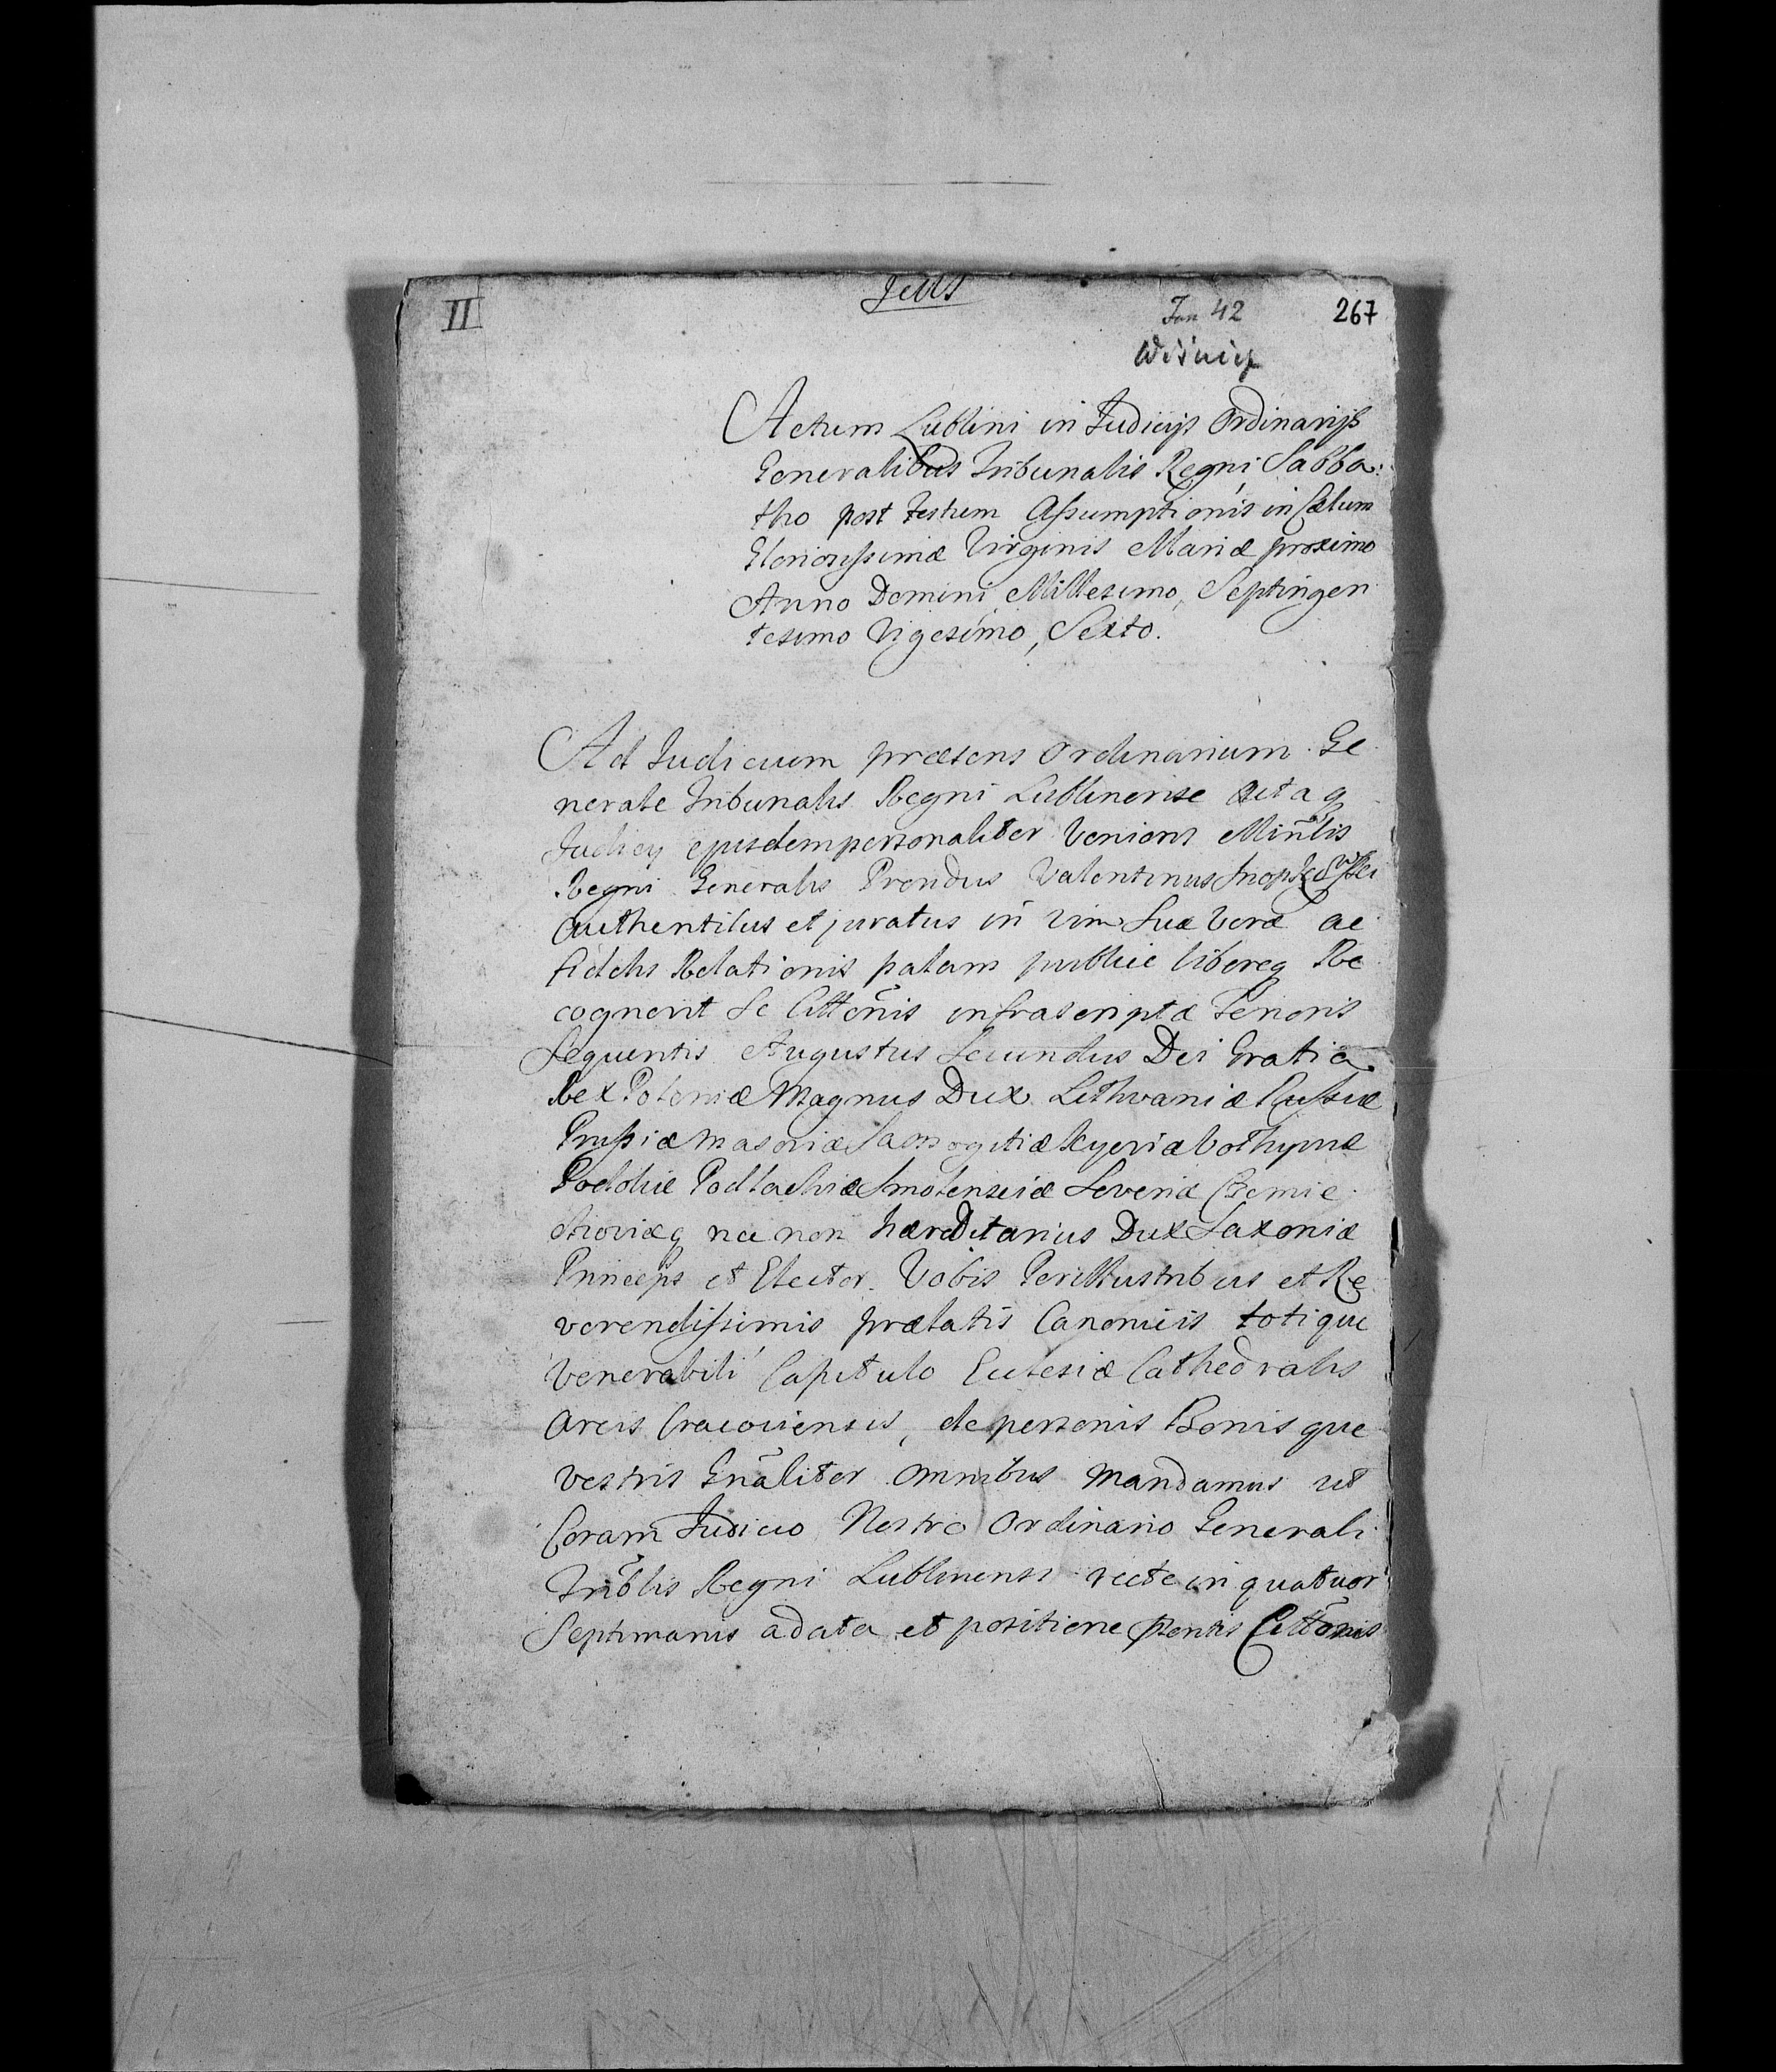 II
Jan 42
267
Wiśnicz
Actum Lublini in Judicijs Ordinarijs
Generalibus Tribunalis Regni, Sabba:
tho post Festum Assumptionis in Cælum
Gloriosissimæ Virginis Mariæ proximo
Anno Domini Millesimo, Septingen
tesimo Vigesimo, Sexto.
Ad Judicium præsens Ordinarium Ge
nerale Tribunalis Regni Lublinense Acta q
Judicy ejusdem personaliter Veniens Min̄lis
Regni Generalis Prondus Valentinus
Authenticus et juratus in vim Suæ Veræ ac
fidelis Relationis palam publice libereq Re
cognovit Se Citt̄onis infrascriptæ Tenoris
Sequentis Augustus Secundus Dei Gratia
Rex Poloniæ Magnus Dux Lithvaniæ Russiæ
Prussiæ Masoviæ Samogitiæ Kyoviæ Volhyniæ
Podoliæ Podlachiæ Smolensciæ Severiæ Czernie
choviæq nec non hæreditarius Dux Saxoniæ
Princeps et Elector. Vobis Perillustribus et Re
verendissimis prælatis Canonicis totique
Venerabili Capitulo Eclesiæ Cathedralis
Arcis Cracoviensis, de personis Bonis que
vestris Gn̄aliter omnibus Mandamus ut
Coram Judicio Nostro Ordinario Generali
Trib̄lis Regni Lublinensi recte in quatuor
Septimanis a data et positione p̄sentis Citt̄onis